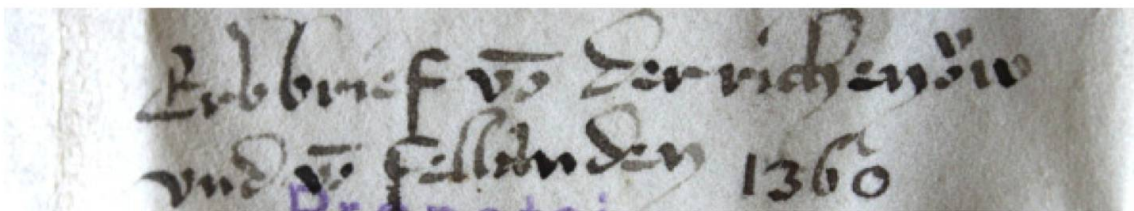 Erbbrief vō der richenöw
vnd vō Fellanden 1360